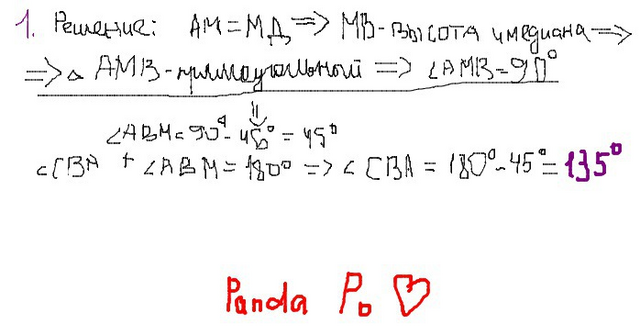 1. Решение: AM=MД => MB-высота и медиана =>
=> △ AMB-прямоугольный => ∠AMB=90°
∠ABM=90°-45°=45°
∠CBA + ∠ABM=180° => ∠CBA = 180°-45°=135°
Panda Po ♡